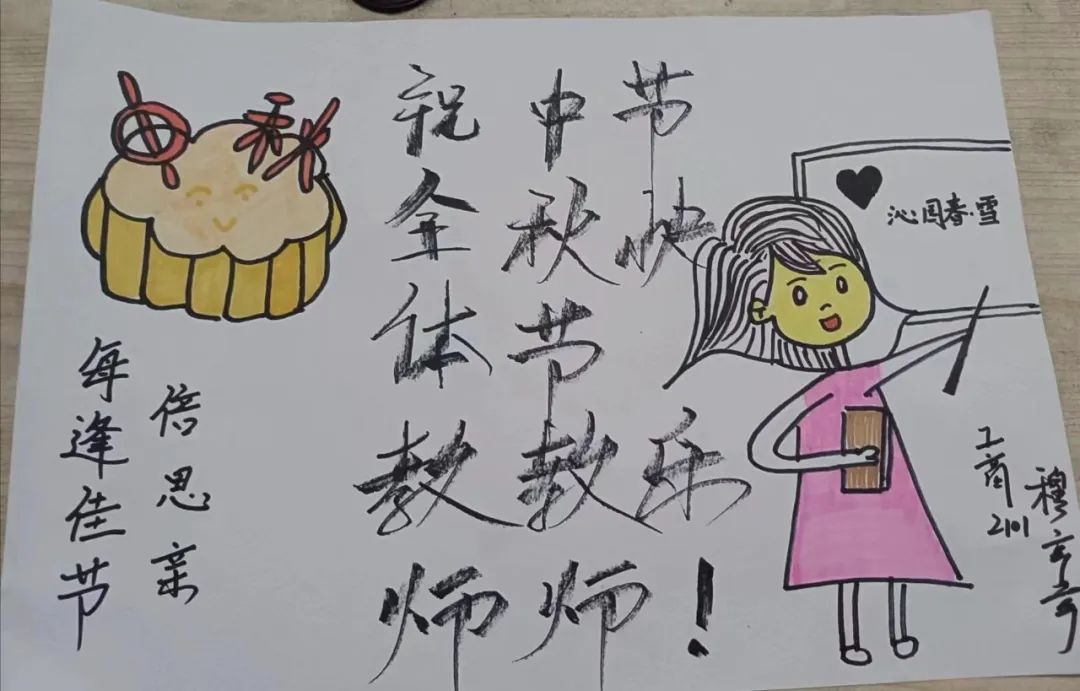 中秋
每逢佳节
倍思亲
祝全体教师
中秋节教师
节快乐!
沁园春·雪
工商2101